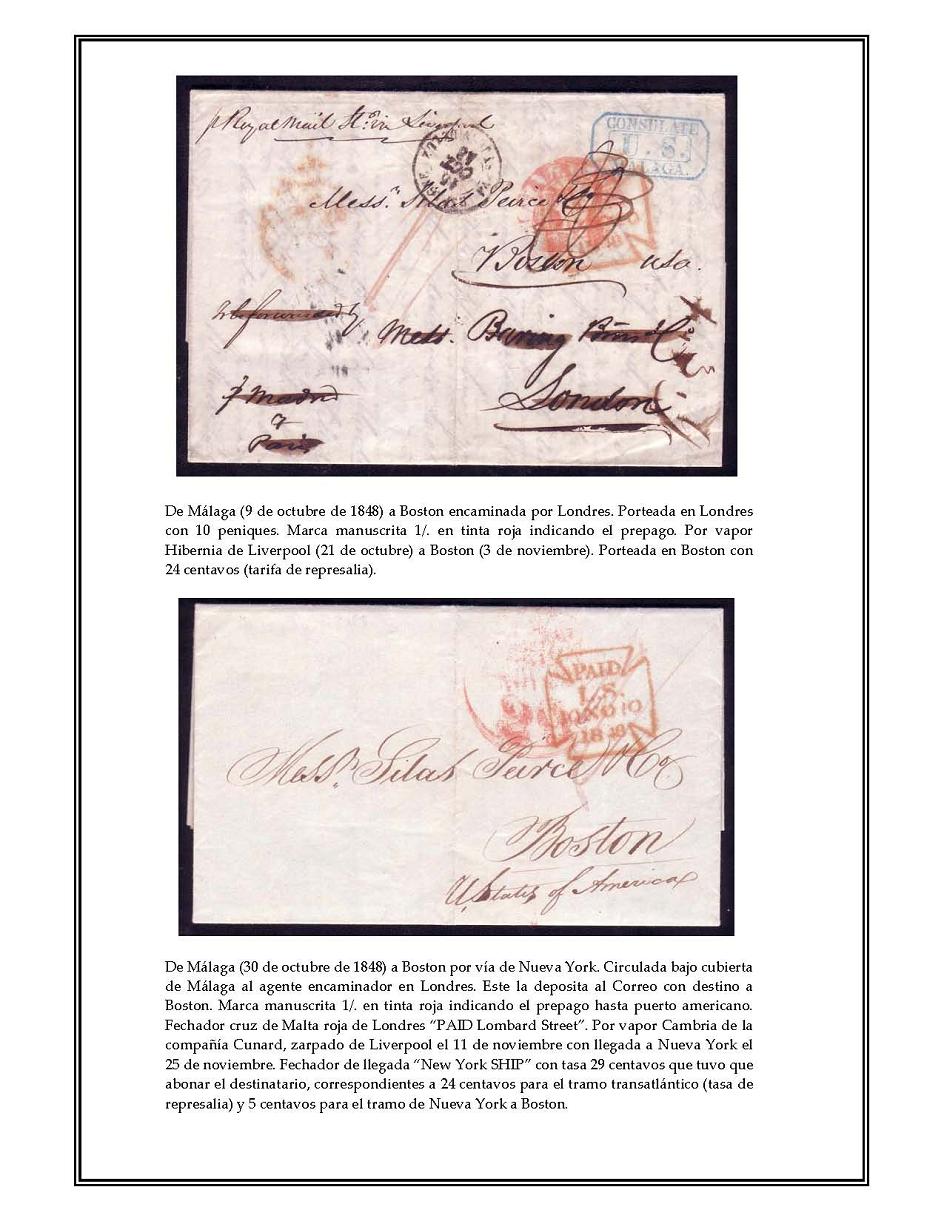 p Royal Mail St. via Liverpool
CONSULATE
U. S.
MALAGA.
Mess. Silas Peirce & Co
Boston usa.
Mess. Baring
London
p Madrid
&
Paris
De Málaga (9 de octubre de 1848) a Boston encaminada por Londres. Porteada en Londres
con 10 peniques. Marca manuscrita 1/. en tinta roja indicando el prepago. Por vapor
Hibernia de Liverpool (21 de octubre) a Boston (3 de noviembre). Porteada en Boston con
24 centavos (tarifa de represalia).
PAID
L.S.
10 NO 10
1848
Messrs. Silas Peirce & Co
Boston
U. States of America
De Málaga (30 de octubre de 1848) a Boston por vía de Nueva York. Circulada bajo cubierta
de Málaga al agente encaminador en Londres. Este la deposita al Correo con destino a
Boston. Marca manuscrita 1/. en tinta roja indicando el prepago hasta puerto americano.
Fechador cruz de Malta roja de Londres “PAID Lombard Street”. Por vapor Cambria de la
compañía Cunard, zarpado de Liverpool el 11 de noviembre con llegada a Nueva York el
25 de noviembre. Fechador de llegada “New York SHIP” con tasa 29 centavos que tuvo que
abonar el destinatario, correspondientes a 24 centavos para el tramo transatlántico (tasa de
represalia) y 5 centavos para el tramo de Nueva York a Boston.